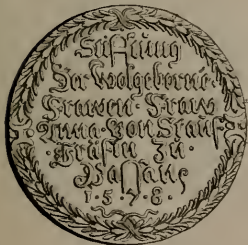 Stifftung
Der Wolgeborne·
Frawen· Fraw
Anna·Von Stauf·
Gräfin· Zu·
·1·5·7·8·